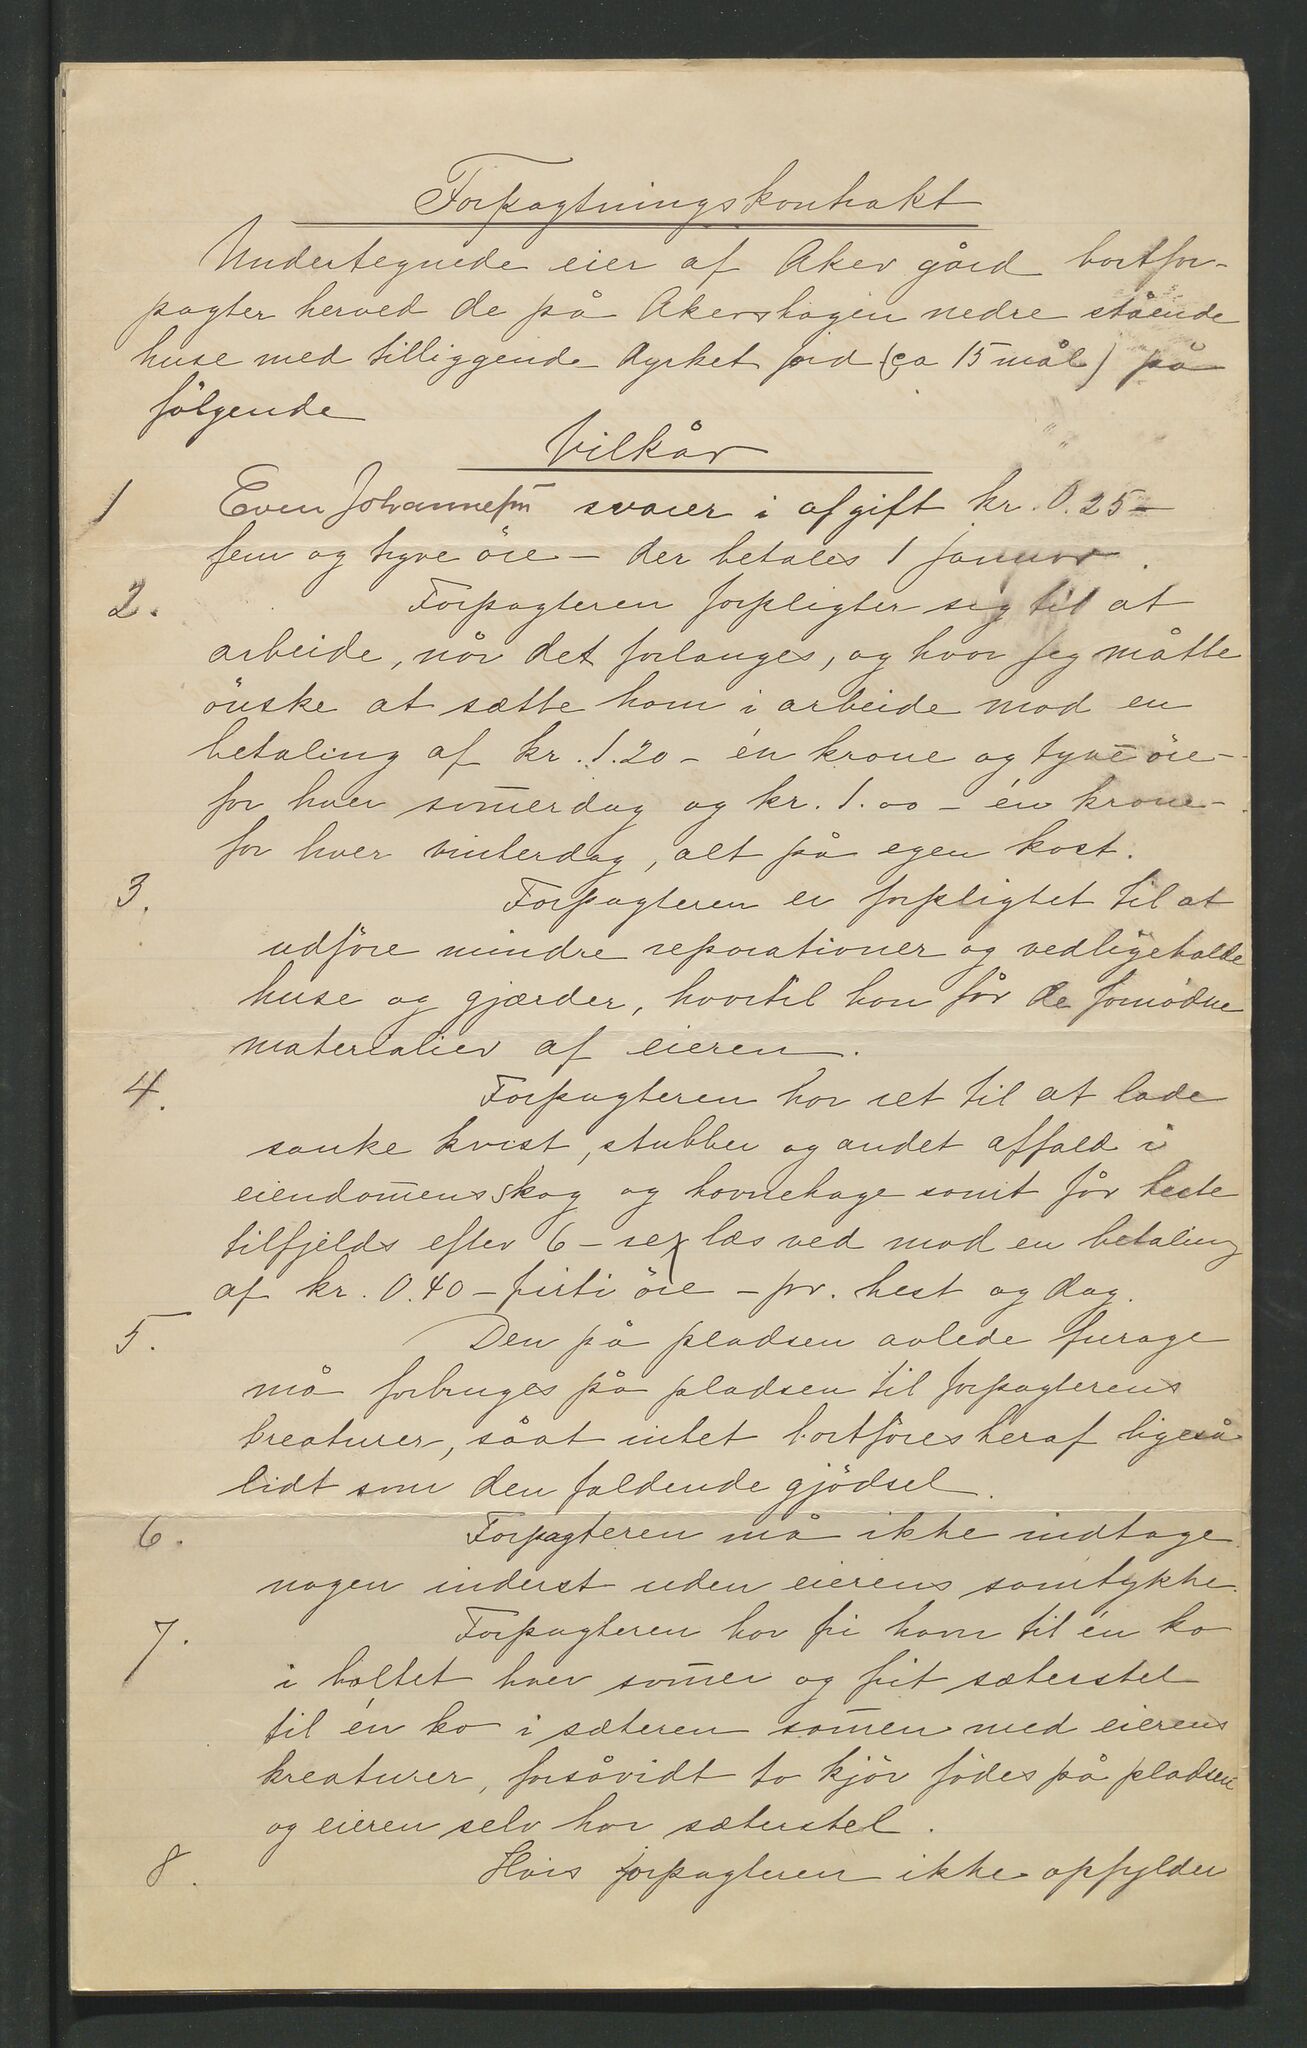 Forpagtningskontrakt
Undertegnede eier af Aker gård bortfor-
pagter herved de på Akershagen nedre stående
huse med tilliggende dyrket jord (ca 15 mål) på
følgende
Vilkår
1 Even Johannesen svarer i afgift kr. 0.25 –
fem og tyve öre – der betales 1 januar.
2. Forpagteren forpligter sig til at
arbeide, når det forlanges, og hvor jeg måtte
önske at sætte ham i arbeide mod en
betaling af kr. 1.20 – én krone og tyve öre –
for hver som̅erdag og kr. 1.00 – én krone –
for hver vinterdag, alt på egen kost.
3. Forpagteren er forpligtet til at
udföre mindre reparationer og vedligeholde
huse og gjærder, hvortil han får de fornødne
materialier af eieren.
4. Forpagteren har ret til at lade
sanke kvist, stubber og andet affald i
eiendom̅ens skog og havnehage samt får heste
tilfjelds efter 6 – sex læs ved mod en betaling
af kr. 0.40 – firti öre – pr. hest og dag.
5. Den på pladsen avlede furage
må forbruges på pladsen til forpagterens
kreaturer, såat intet bortföres heraf ligeså
lidt som den faldende gjödsel.
6. Forpagteren må ikke indtage
nogen inderst uden eierens samtykke.
7. Forpagteren har fri havn til én ko
i holtet hver som̅er og frit sæterstel
til én ko i sæteren sam̅en med eierens
kreaturer, forsåvidt to kjör födes på pladsen
og eieren selv har sæterstel.
8. Hvis forpagteren ikke opfylder